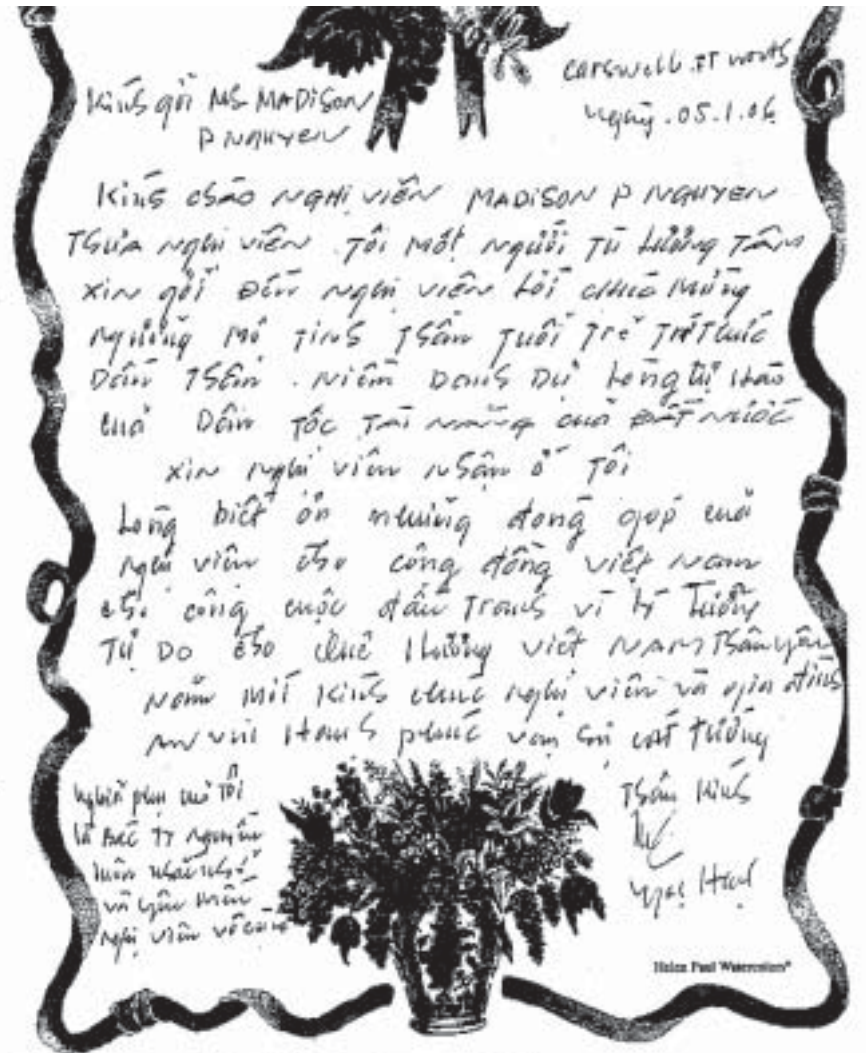 Carswell FT Worth
Ngày . 05.1.06
Kính gởi MS MADISON
P NGUYEN
Kính chào nghị viên MADISON P NGUYEN
Thưa nghị viên . Tôi một người tù lương tâm
xin gởi đến nghị viên lời chúc mừng
ngưỡng mộ tinh thần tuổi trẻ trí thức
Dấn Thân . Niềm Danh Dự lòng tự hào
của Dân Tộc tài năng của ĐẤT NƯỚC
xin nghị viên nhận ở Tôi
lòng biết ơn những đóng góp của
nghị viên cho cộng đồng Việt Nam
cho công cuộc đấu Tranh vì lý tưởng
Tự Do cho quê hương Việt NAM Thân yêu
Năm mới Kính chúc nghị viên và gia đình
An vui Hạnh phúc vạn sự cát tường
Thân Kính
nghĩa phụ của Tôi
là Bác Tỷ Nguyễn
luôn nhắc nhở
và yêu mến
nghị viên vô cùng
Helen Paul Watercolors®